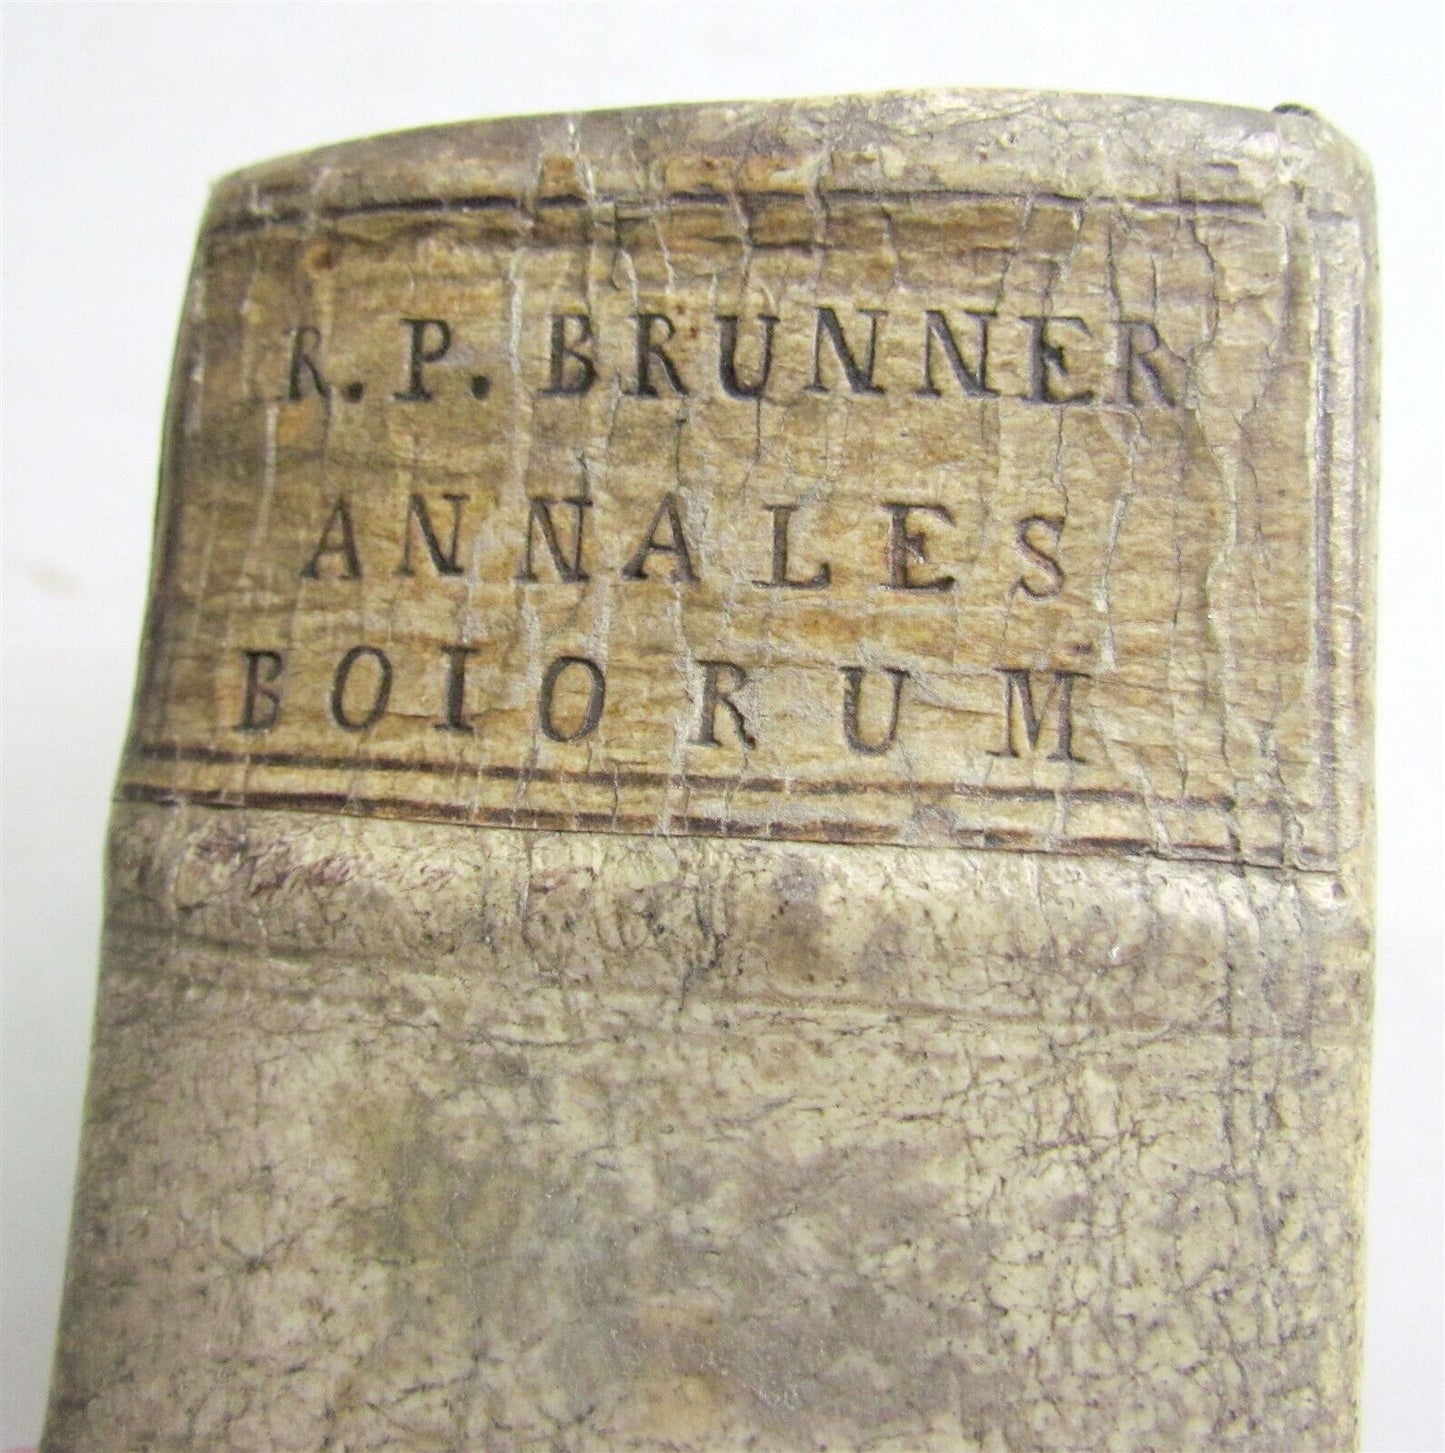 R. P. BRUNNER
ANNALES
BOIORUM